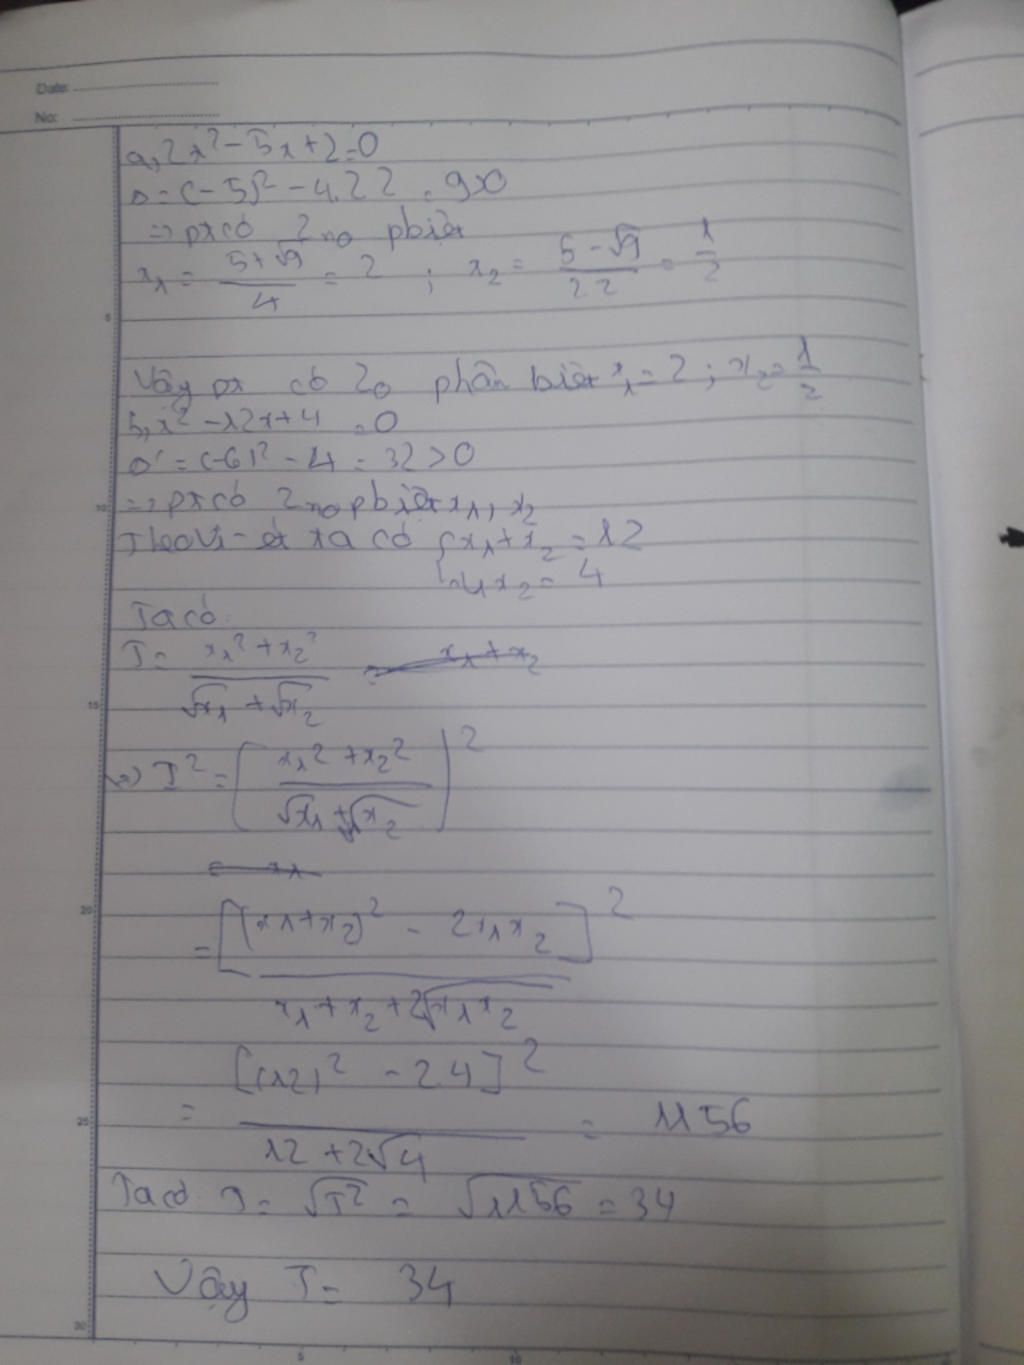 Date:
No:
a, 2x² - 5x + 2 = 0
Δ = (-5)² - 4.2.2 = 9 > 0
=> pt có 2 no pbiệt
x₁ = (5+√9)/4 = 2 ; x₂ = (5-√9)/2.2 = 1/2
5
Vậy pt có 2o phân biệt x₁ = 2 ; x₂ = 1/2
b, x² - 12x + 4 = 0
Δ' = (-6)² - 4 = 32 > 0
10
=> pt có 2 no pbiệt x₁, x₂
Theo Vi-ét ta có { x₁ + x₂ = 12
x₁x₂ = 4
Ta có:
T = (x₁² + x₂²)/(√x₁ + √x₂) = x₁ + x₂
15
=> T² = [(x₁² + x₂²)/(√x₁ + √x₂)]²
= x₁
20
= [(x₁+x₂)² - 2x₁x₂]²/(x₁ + x₂ + 2√x₁x₂)
= [(12)² - 2.4]²/(12 + 2√4) = 1156
25
Ta có T = √T² = √1156 = 34
Vậy T = 34
30
5
10